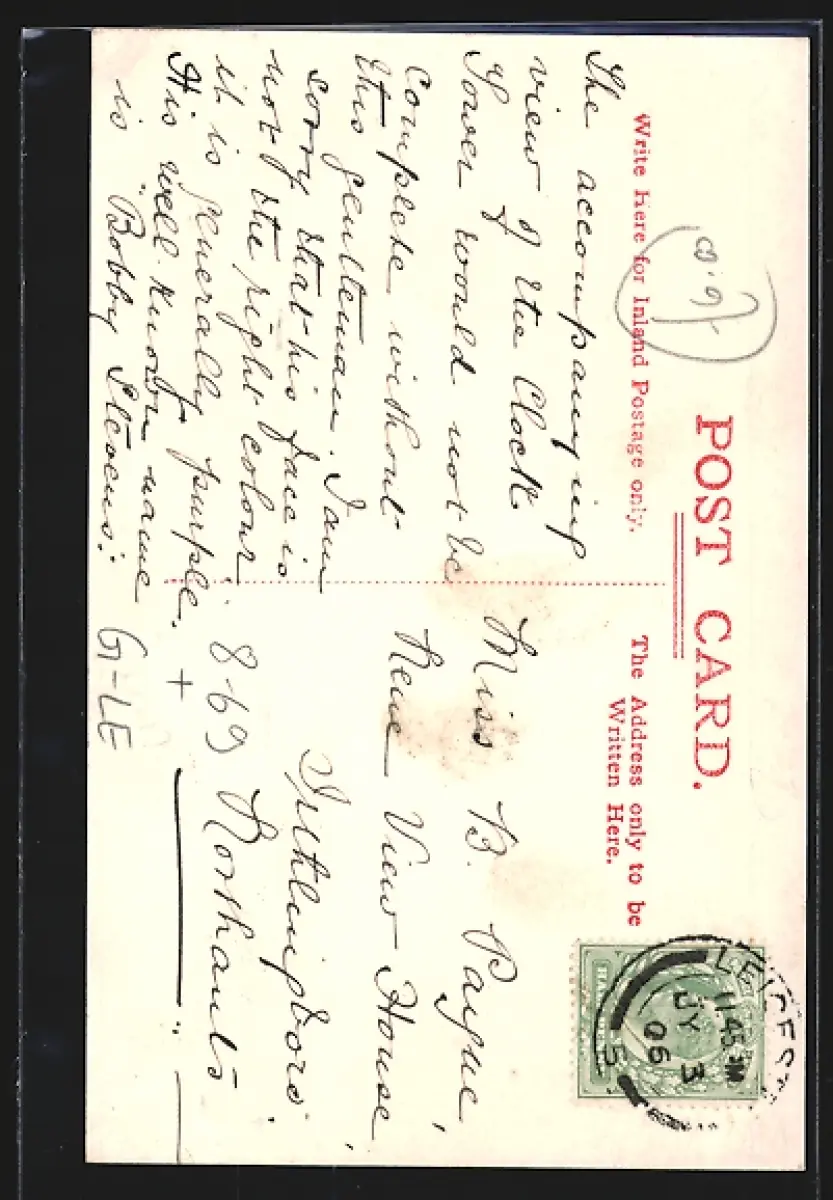 POST CARD.
Write Here for Inland Postage only.
The Address only to be
Written Here.
The accompanying
view of the Clock
Tower would not be
complete without
this gentleman. I am
sorry that his face is
not the right colour
it is generally purple.
His well known name
is "Bobby Stevens."
Miss B. Payne,
Nene View House,
Irthlingboro'.
Northants
8-69
G-LE
LEICEST
11 45 AM
JY 3
06
5